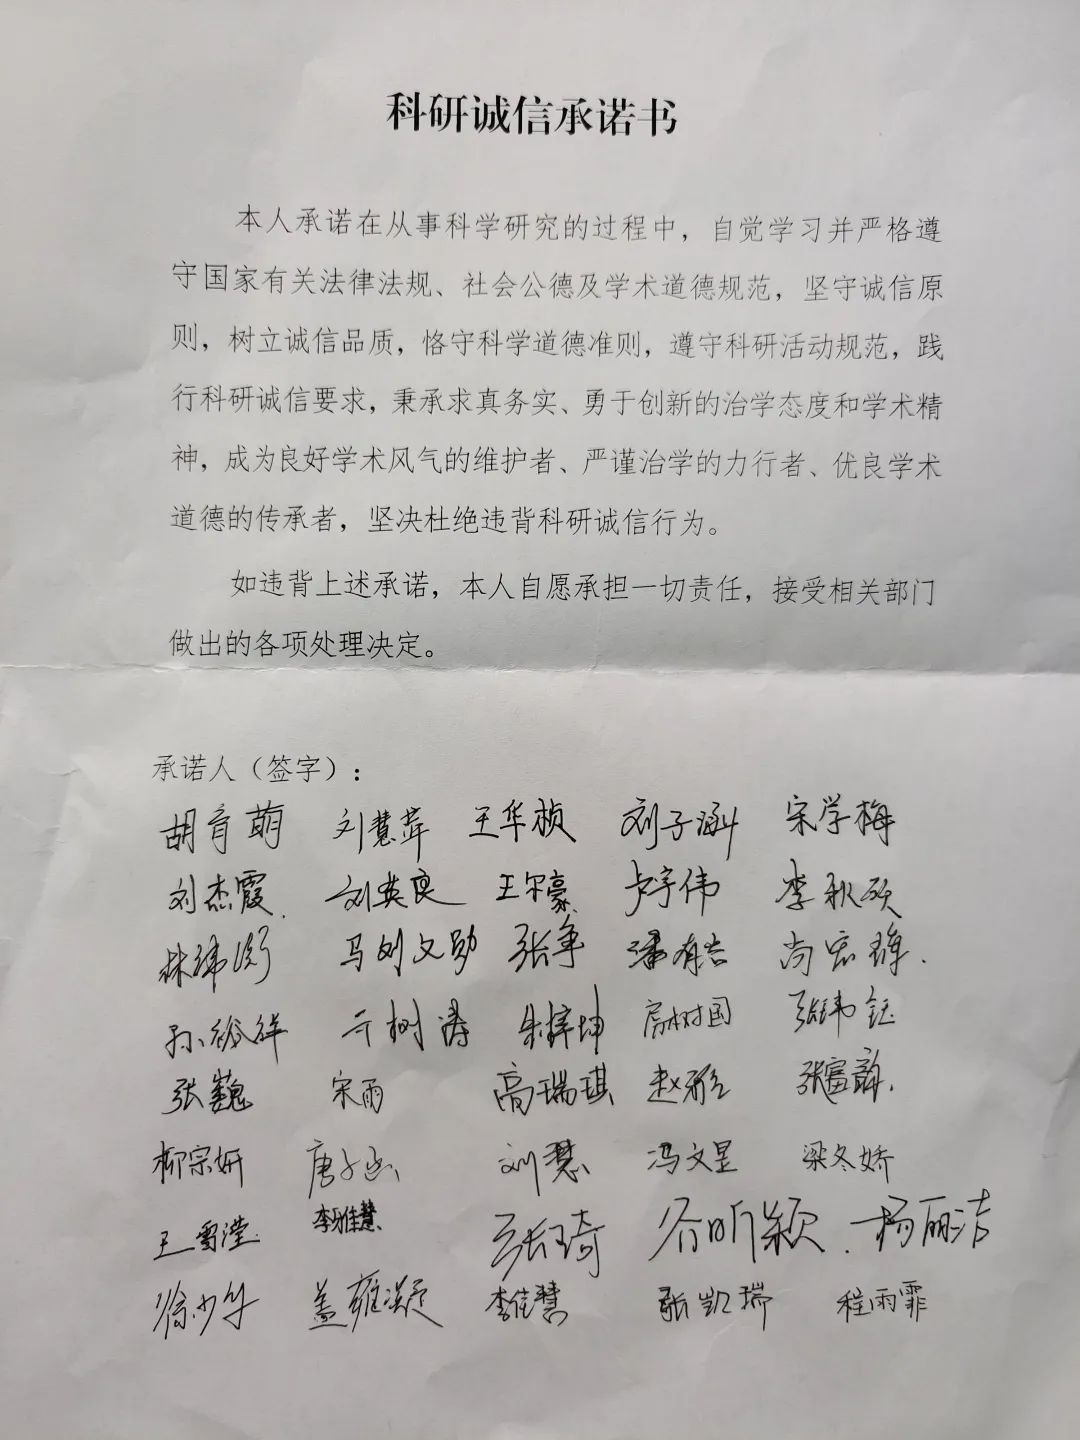 科研诚信承诺书
本人承诺在从事科学研究的过程中，自觉学习并严格遵
守国家有关法律法规、社会公德及学术道德规范，坚守诚信原
则，树立诚信品质，恪守科学道德准则，遵守科研活动规范，践
行科研诚信要求，秉承求真务实、勇于创新的治学态度和学术精
神，成为良好学术风气的维护者、严谨治学的力行者、优良学术
道德的传承者，坚决杜绝违背科研诚信行为。
如违背上述承诺，本人自愿承担一切责任，接受相关部门
做出的各项处理决定。
承诺人（签字）：
胡育萌 刘慧萍 王华桢 刘子涵 宋学梅
刘杰霞 刘英良 卢宇伟 李秋硕
马刘文勋 张争 潘有吉
孙裕祥 亓树涛 朱梓坤 房树国 张玮钰
张巍 宋雨 高瑞琪 赵雅 张富韵
柳宗妍 唐子涵 刘慧 冯文昱 梁冬娇
王雪滢 李雅慧 张琦 谷昕颖 杨丽洁
徐少华 盖雍 李佳慧 张凯瑞 程雨霏